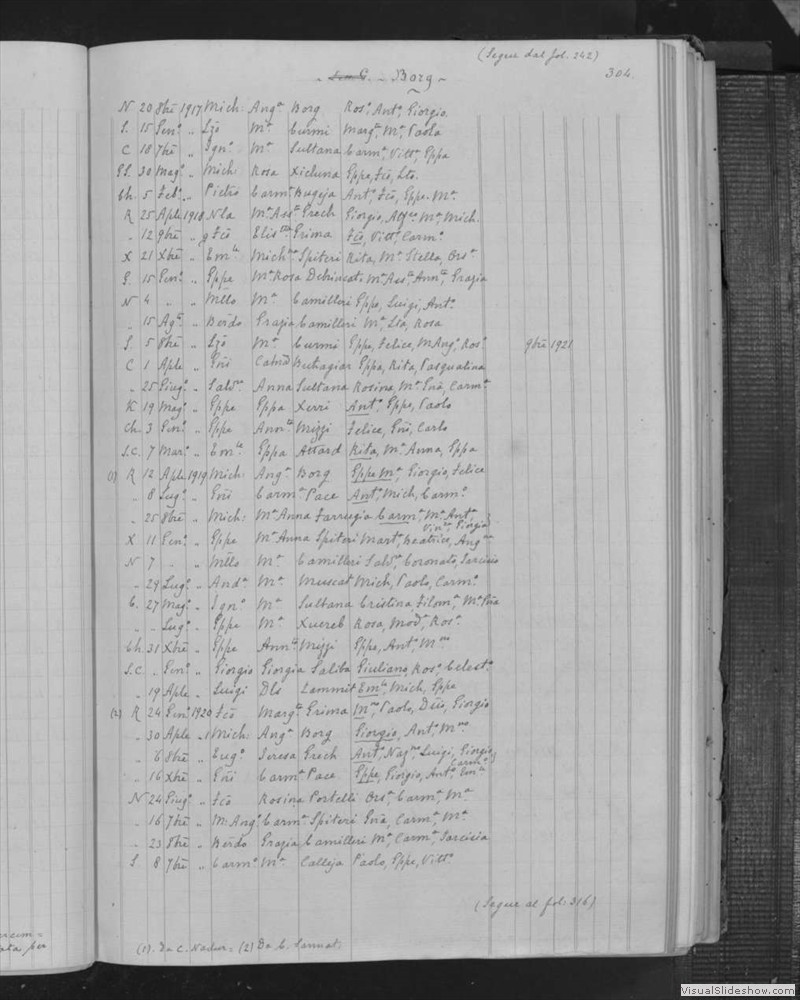 (Segue dal fol. 242)
304.
~ Borg ~
N 20 8bre 1917 Mich: Angª Borg Rosº, Antº, Giorgio
S. 15 Genº „ Lzō Mª Curmi Margª, Mª, Paola
C 18 7bre „ Ignº Mª Sultana Carmª, Vittª, Eppa
30 Magº „ Mich: Rosa Xicluna Eppe, Fcō,
Ch. 5 Febº „ Pietro Carmª Bugeja Antª, Fcō, Eppe. Mª
R 25 Aple 1918 Nla Mª Assª Grech Giorgio, Mª Mich:
„ 12 9bre „ Fcō Grima Fcō, Vittª, Carmº
X 21 Xbre „ Emle Spiteri Rita, Mª Stella, Orsª
15 Genº „ Eppe Mª Rosa Debrincat Mª Assª, Annª, Grazia
N 4 „ „ Mllo Mª Camilleri Eppe, Luigi, Antº
„ 15 Agº „ Berdo Grazia Camilleri Mª, Rosa
S. 5 8bre „ Lzō Mª Curmi Eppe, Felice, M. Angº, Rosº 9bre 1921
C 1 Aple „ Gnī Catnª Buttagiar Eppa, Rita, Pasqualina
„ 25 Giugº „ Salvr Anna Sultana Rosina, Mª Gnā, Carmª
K 19 Magº „ Eppe Eppa Xerri Antª, Eppe, Paolo
Ch. 3 Genº „ Eppe Annlª Mizzi Felice, Gnī, Carlo
S.C. 7 Marº „ Emle Eppa Attard Rita, Mª Anna, Eppa
(1) R 12 Aple 1919 Mich: Angª Borg Eppe Mª, Giorgio, Felice
„ 8 Lugº „ Gnī Carmª Pace Antº, Mich, Carmº
„ 25 8bre „ Mich: Mª Anna Farrugia Carmª, Mª Antª, Giorgia
X 11 Genº „ Eppe Mª Anna Spiteri Martª, Beatrice,
N 7 „ „ Mllo Mª Camilleri Salvr, Coronato, Tarcisio
„ 29 Lugº „ Andª Mª Muscat Mich, Paolo, Carmº
C. 27 Magº „ Ignº Mª Sultana Cristina, Filomª, Mª Gnā
„ „ Lugº „ Eppe Mª Xuereb Rosa, Rosª
Ch. 31 Xbre „ Eppe Annlª Mizzi Eppe, Antª, Mno
S.C. „ Genº „ Giorgio Giorgia Saliba Giuliano, Rosª, Celestª
„ 19 Aple „ Luigi Dls Zammit Emle, Mich, Eppe
(2) R 24 Genº 1920 Fcō Margª Grima Mno, Paolo, Giorgio
„ 30 Aple „ Mich: Angª Borg Giorgio, Antº, Mno
„ 6 8bre „ Eugº Teresa Grech Antº, Luigi, Giorgio,
„ 16 Xbre „ Gnī Carmª Pace Eppe, Giorgio, Antº, Carmº Emle
N 24 Giugº „ Fcō Rosina Portelli Orsª, Carmª, Mª
„ 16 7bre „ M. Angº Carmª Spiteri Gnā, Carmª, Mª
„ 23 8bre „ Berdo Grazia Camilleri Mª, Carmª, Tarcisia
S. 8 7bre „ Carmº Mª Calleja Paolo, Eppe, Vittº
(Segue al fol. 316)
(1). Da C. Nadur = (2) Da C. Sannat
VisualSlideshow.com